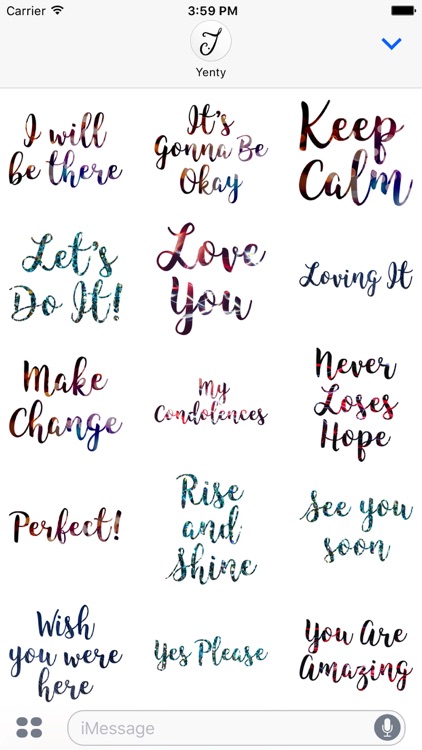 Carrier 3:59 PM
J
Yenty
I will
be there
It's
Gonna Be
Okay
Keep
Calm
Let's
Do It!
Love
You
Loving It
Make
Change
My
Condolences
Never
Loses
Hope
Perfect!
Rise
and
Shine
See you
soon
Wish
you were
here
Yes Please
You Are
Amazing
iMessage